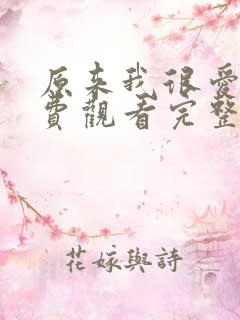 原来我很爱
费觀看完整
花嫁與詩